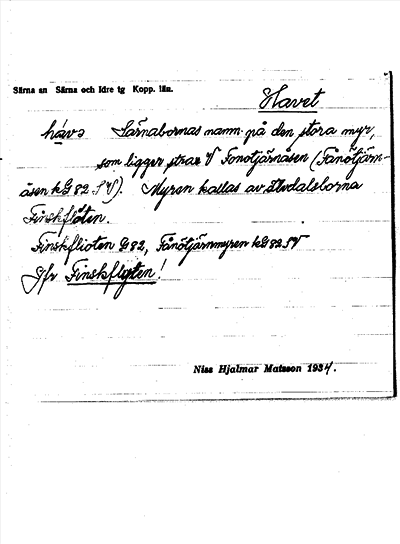 Särna sn Särna och Idre tg Kopp. län.
Havet
hávə Särnabornas namn på den stora myr,
som ligger strax V Fonotjärnåsen (Fånötjärn-
åsen kG 82 SV). Myren kallas av Älvdalsborna
Finskflöten.
Finskfloten G82, Fånötjärnmyren kG82SV
Jfr Finskflyten!
Niss Hjalmar Matsson 1934.